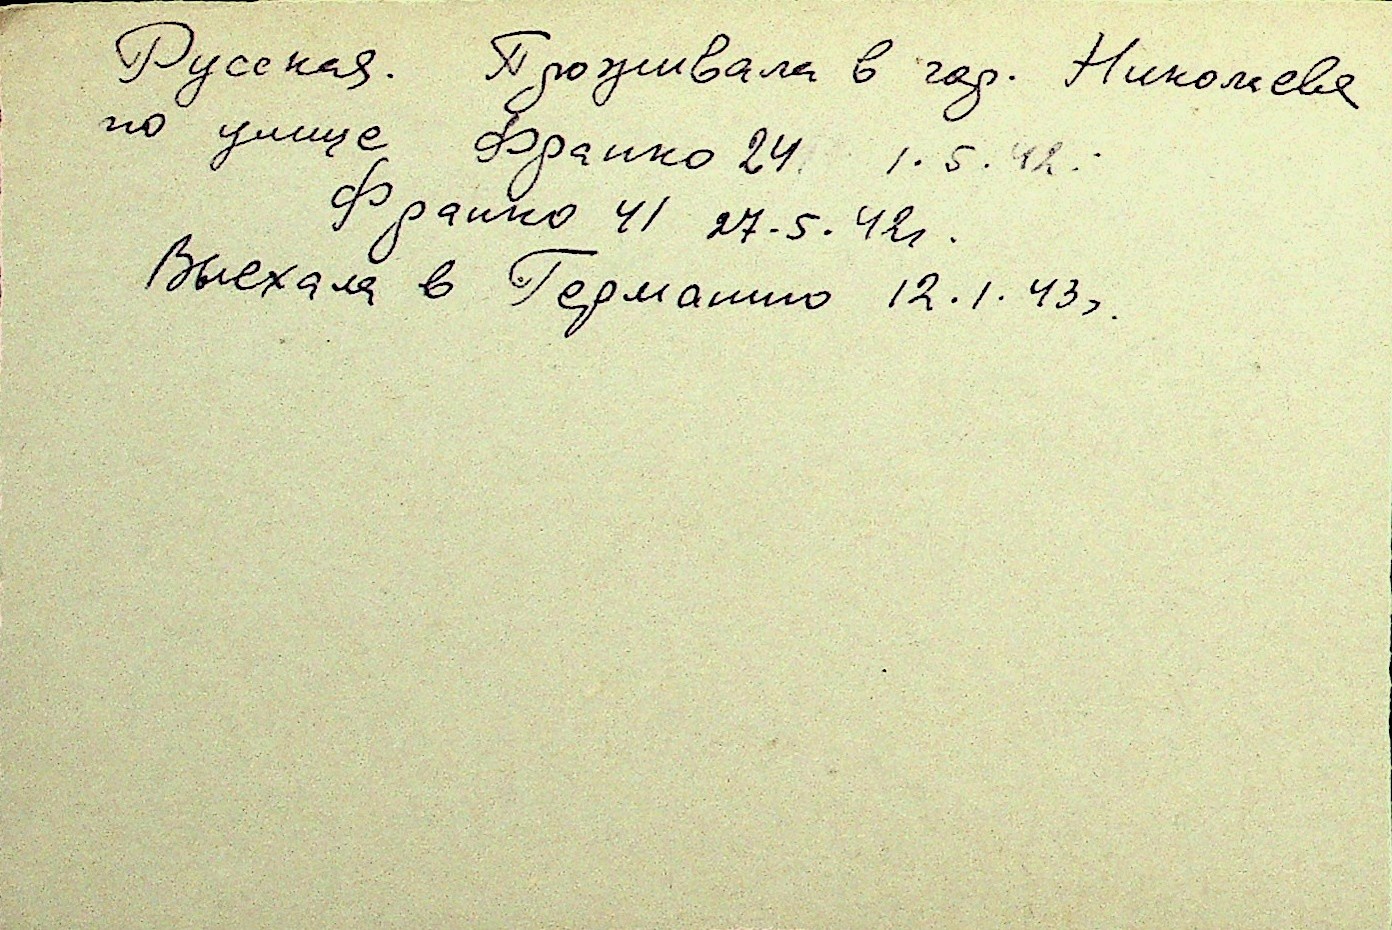 Русская. Проживала в гор. Николаеве
по улице Франко 24 1.5.42.
Франко 41 27.5.42г.
Выехала в Германию 12.1.43г.